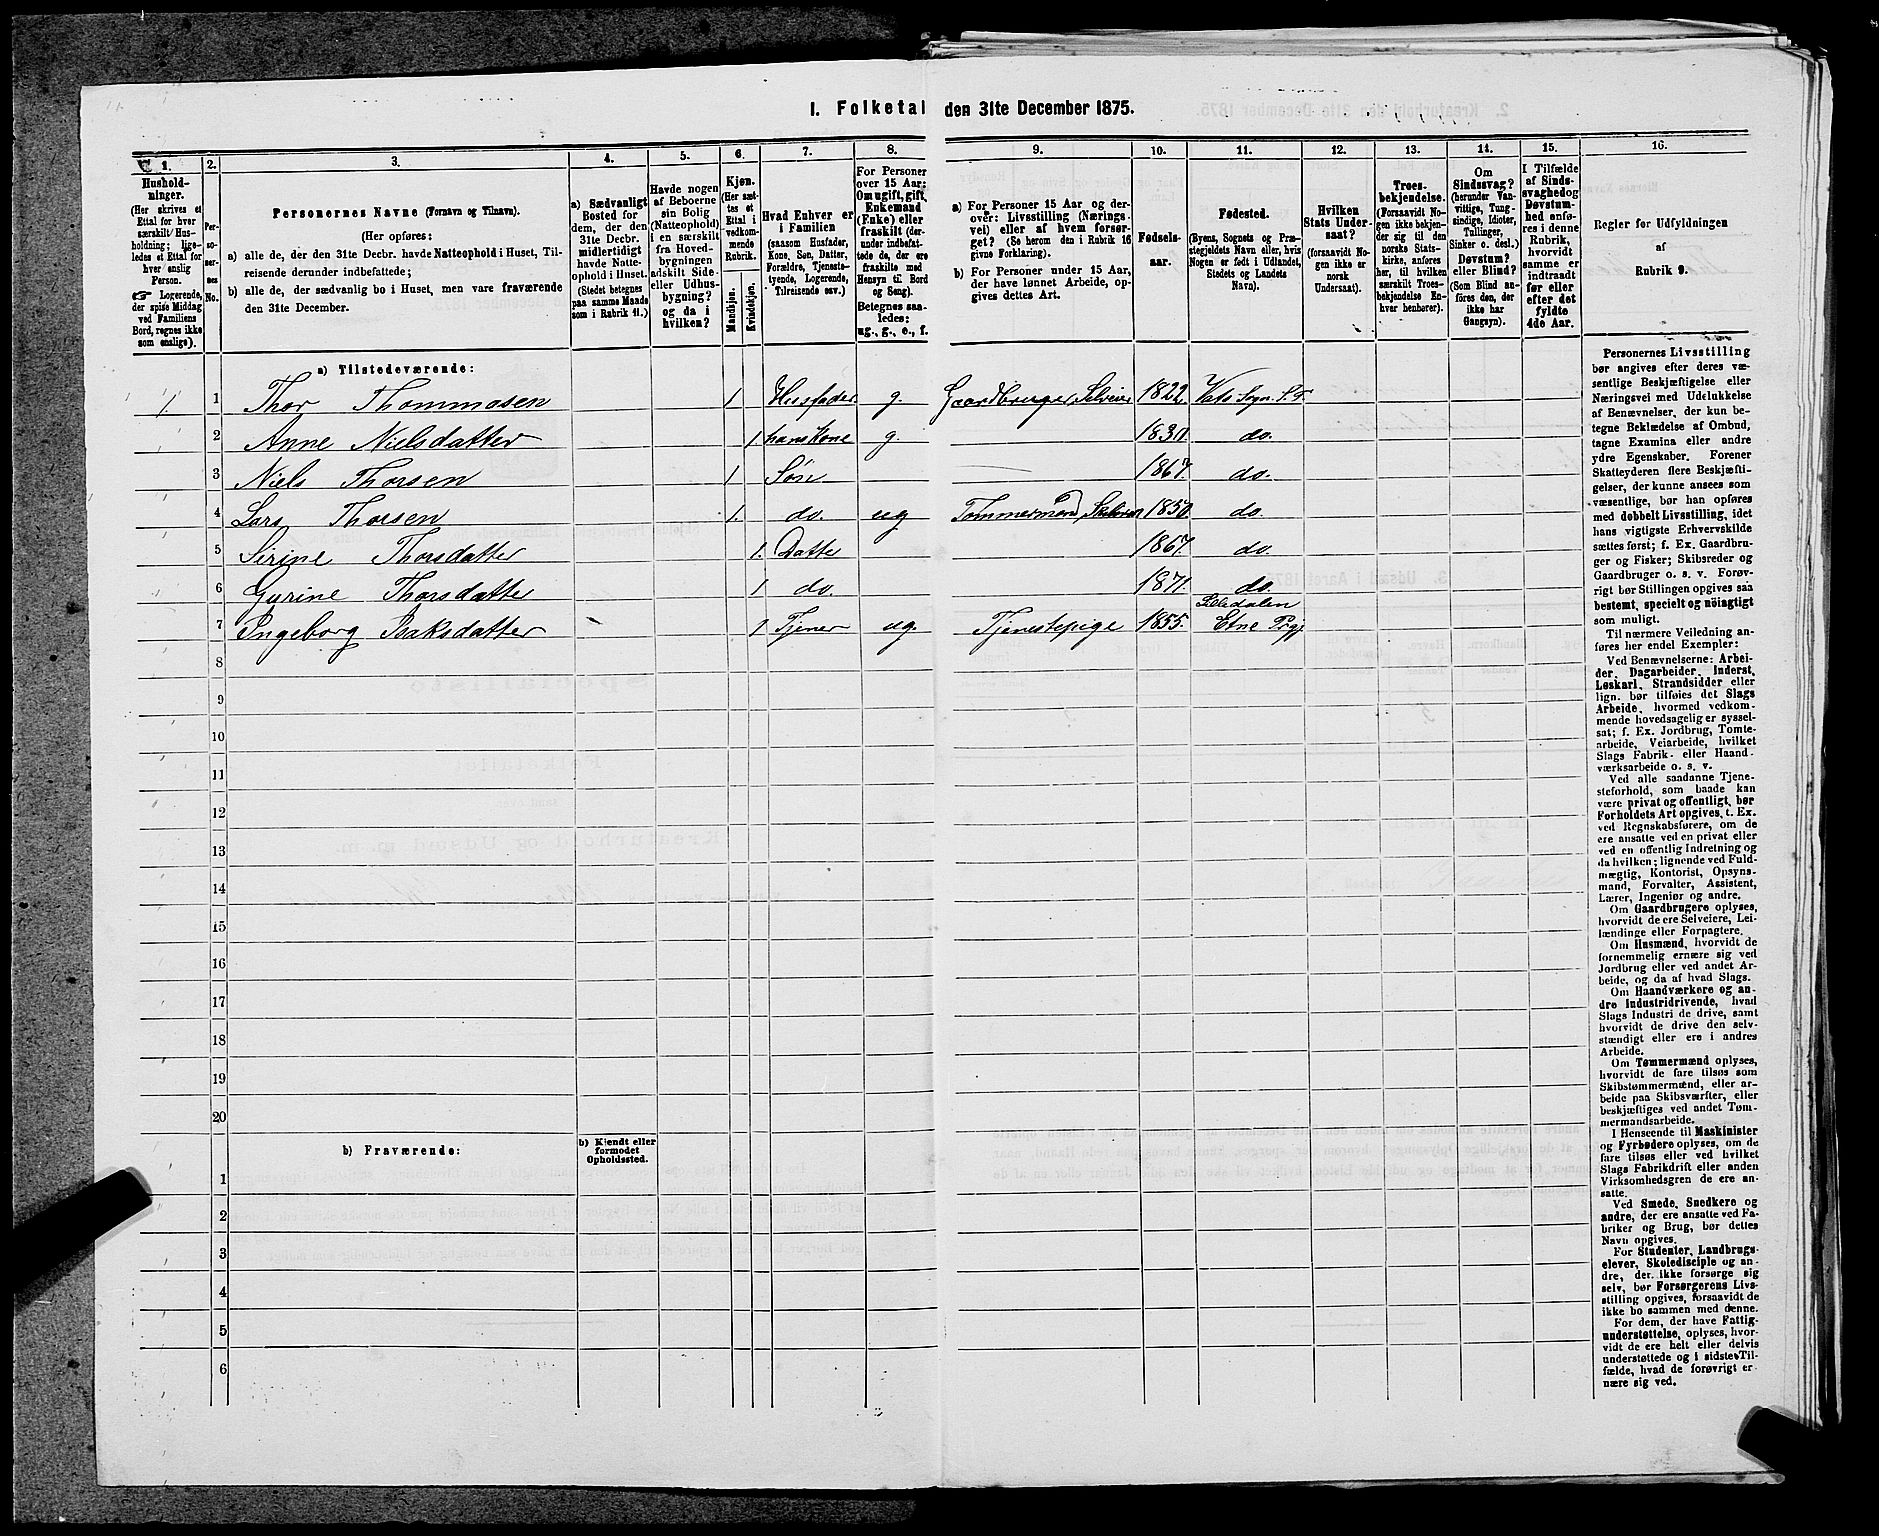 1. Folketal den 31te December 1875.
1. 2. 3. 4. 5. 6. 7. 8. 9. 10. 11. 12. 13. 14. 15. 16.
Hushold-
ninger.
(Her skrives et
Ettal for hver
særskilt Hus-
holdning; lige-
ledes et Ettal for
hver enslig
Person.
☞ Logerende,
der spise Middag
ved Familiens
Bord, regnes ikke
som enslige).
Per-
so-
ner-
nes
No.
Personernes Navne (Fornavn og Tilnavn).
(Her opføres:
a) alle de, der den 31te Decbr. havde Natteophold i Huset, Til-
reisende derunder indbefattede;
b) alle de, der sædvanlig bo i Huset, men vare fraværende
den 31te December.
a) Sædvanligt
Bosted for
dem, der den
31te Decbr.
midlertidigt
havde Natte-
ophold i Huset.
(Stedet betegnes
paa samme Maade
som i Rubrik 11.)
Havde nogen
af Beboerne
sin Bolig
(Natteophold)
i en særskilt
fra Hoved-
bygningen
adskilt Side-
eller Udhus-
bygning?
og da i
hvilken?
Kjøn.
(Her sæt-
tes et
Ettal i
vedkom-
mende
Rubrik.
Mandkjøn.
Kvindekjøn.
Hvad Enhver er
i Familien
(saasom Husfader,
Kone, Søn, Datter,
Forældre, Tjeneste-
tyende, Logerende,
Tilreisende osv.)
For Personer
over 15 Aar:
Om ugift, gift,
Enkemand
(Enke) eller
fraskilt (der-
under indbefat-
tede de, der ere
fraskilte med
Hensyn til Bord
og Seng).
Betegnes saa-
ledes:
ug., g., e., f.
a) For Personer 15 Aar og der-
over: Livsstilling (Nærings-
vei) eller af hvem forsør-
get? (Se herom den i Rubrik 16
givne Forklaring).
b) For Personer under 15 Aar,
der have lønnet Arbeide, op-
gives dettes Art.
Fødsels-
aar.
Fødested.
(Byens, Sognets og Præ-
stegjeldets Navn eller, hvis
Nogen er født i Udlandet,
Stedets og Landets
Navn).
Hvilken
Stats Under-
saat?
(forsaavidt No-
gen ikke er
norsk
Undersaat).
Troes-
bekjendelse.
(Forsaavidt No-
gen ikke bekjen-
der sig til den
norske Stats-
kirke, anføres
her, til hvilken
særskilt Troes-
bekjendelse En-
hver henhører).
Om
Sindssvag?
(herunder Van-
vittige, Tung-
sindige, Idioter,
Tullinger,
Sinker o. desl.)
Døvstum?
eller Blind?
(Som Blind an-
føres den, der
ikke har
Gangsyn).
I Tilfælde
af Sinds-
svaghed og
Døvstum-
hed anfø-
res i denne
Rubrik,
hvorvidt
samme er
indtraadt
før eller
efter det
fyldte
4de Aar.
Regler for Udfyldningen
af
Rubrik 9.
a) Tilstedeværende:
1. 1 Thor Thommasen 1 Husfader g. Gaardbruger Selveier 1822 Vats Sogn. S.F
2 Anne Nielsdatter 1. hans Kone g. 1830 do.
3 Niels Thorsen 1 Søn 1867. do.
4 Lars Thorsen 1. do. ug Tømmermand 1850 do.
5 Sirine Thorsdatter 1. Datte 1867. do.
6 Gurine Thorsdatter 1 do. 1871. do.
7 Ingeborg Baksdatter 1 Tjener ug. Tjenestepige 1855. Etne Prgj
8
9
10
11
12
13
14
15
16
17
18
19
20
b) Fraværende:
b) Kjendt eller
formodet
Opholdssted.
1
2
3
4
5
6
Personernes Livsstilling
bør angives efter deres væ-
sentlige Beskjæftigelse eller
Næringsvei med Udelukkelse
af Benævnelser, der kun be-
tegne Beklædelse af Ombud,
tagne Examina eller andre
ydre Egenskaber. Forener
Skatteyderen flere Beskjæfti-
gelser, der kunne ansees som
væsentlige, bør han opføres
med dobbelt Livsstilling, idet
hans vigtigste Erhvervskilde
sættes først; f. Ex. Gaardbru-
ger og Fisker; Skibsreder og
Gaardbruger o. s. v. Forøv-
rigt bør Stillingen opgives saa
bestemt, specielt og nøiagtigt
som muligt.
Til nærmere Veiledning an-
føres her endel Exempler:
Ved Benævnelserne: Arbei-
der, Dagarbeider, Inderst,
Løskarl, Strandsidder eller
lign. bør tilføies det Slags
Arbeide, hvormed vedkom-
mende hovedsagelig er syssel-
sat; f. Ex. Jordbrug, Tomte-
arbeide, Veiarbeide, hvilket
Slags Fabrik- eller Haand-
værksarbeide o. s. v.
Ved alle saadanne Tjene-
steforhold, som baade kan
være privat og offentligt, bør
Forholdets Art opgives, t. Ex.
ved Regnskabsførere, om de
ere ansatte ved en privat eller
ved en offentlig Indretning og
da hvilken; lignende ved Fuld-
mægtig, Kontorist, Opsyns-
mand, Forvalter, Assistent,
Lærer, Ingeniør og andre.
Om Gaardbrugere oplyses,
hvorvidt de ere Selveiere, Lei-
lændinge eller Forpagtere.
Om Husmænd, hvorvidt de
fornemmelig ernære sig ved
Jordbrug eller ved andet Ar-
beide, og da af hvad Slags.
Om Haandværkere og an-
dre Industridrivende, hvad
Slags Industri de drive, samt
hvorvidt de drive den selv-
stændigt eller ere i andres
Arbeide.
Om Tømmermænd oplyses,
hvorvidt de fare tilsøs som
Skibstømmermænd, eller ar-
beide paa Skibsværfter, eller
beskjæftiges ved andet Tøm-
mermandsarbeide.
I Henseende til Maskinister
og Fyrbødere oplyses, om de
fare tilsøs eller ved hvilket
Slags Fabrikdrift eller anden
Virksomhedsgren de ere an-
satte.
Ved Smede, Snedkere og
andre, der ere ansatte ved Fa-
briker og Brug, bør dettes
Navn opgives.
For Studenter, Landbrugs-
elever, Skoledisciple og an-
dre, der ikke forsørge sig
selv, bør Forsørgerens Livs-
stilling opgives, forsaavidt de
ikke bo sammen med denne.
For dem, der have Fattig-
understøttelse, oplyses, hvor-
vidt de ere helt eller delvis
understøttede og i sidste Til-
fælde, hvad de forøvrigt er-
nære sig ved.